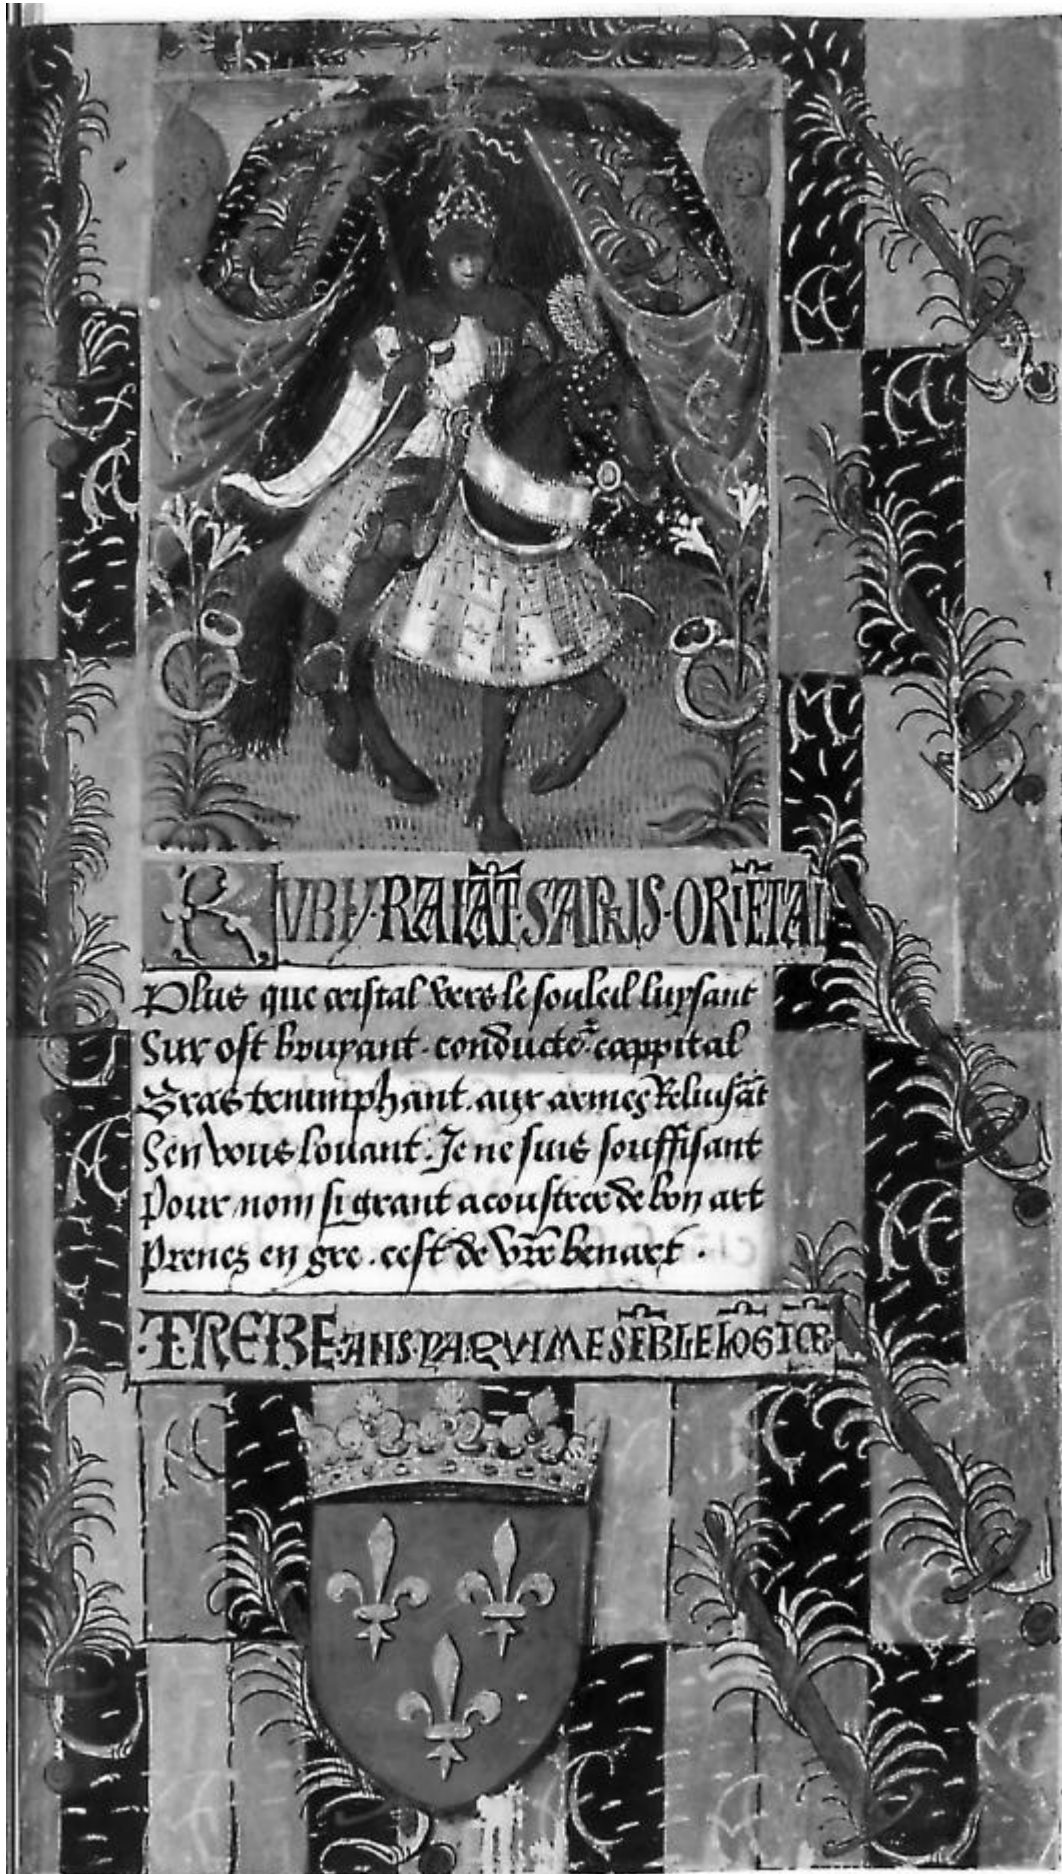 RUBY·RAIAT̄·SAPhIS·ORIĒTAL
Plus que cristal vers le souleil luysant
Sur ost bruyant · conductē cappital
Bras triumphant. aux armes Reluisāt
Sen vous louant. Je ne suis souffisant
Pour nom si grant acoustrer de bon art
Prenez en gre. cest de vr̄e benart ·
·TREZE·ANS·YA·QVIMESĒBLELŌG